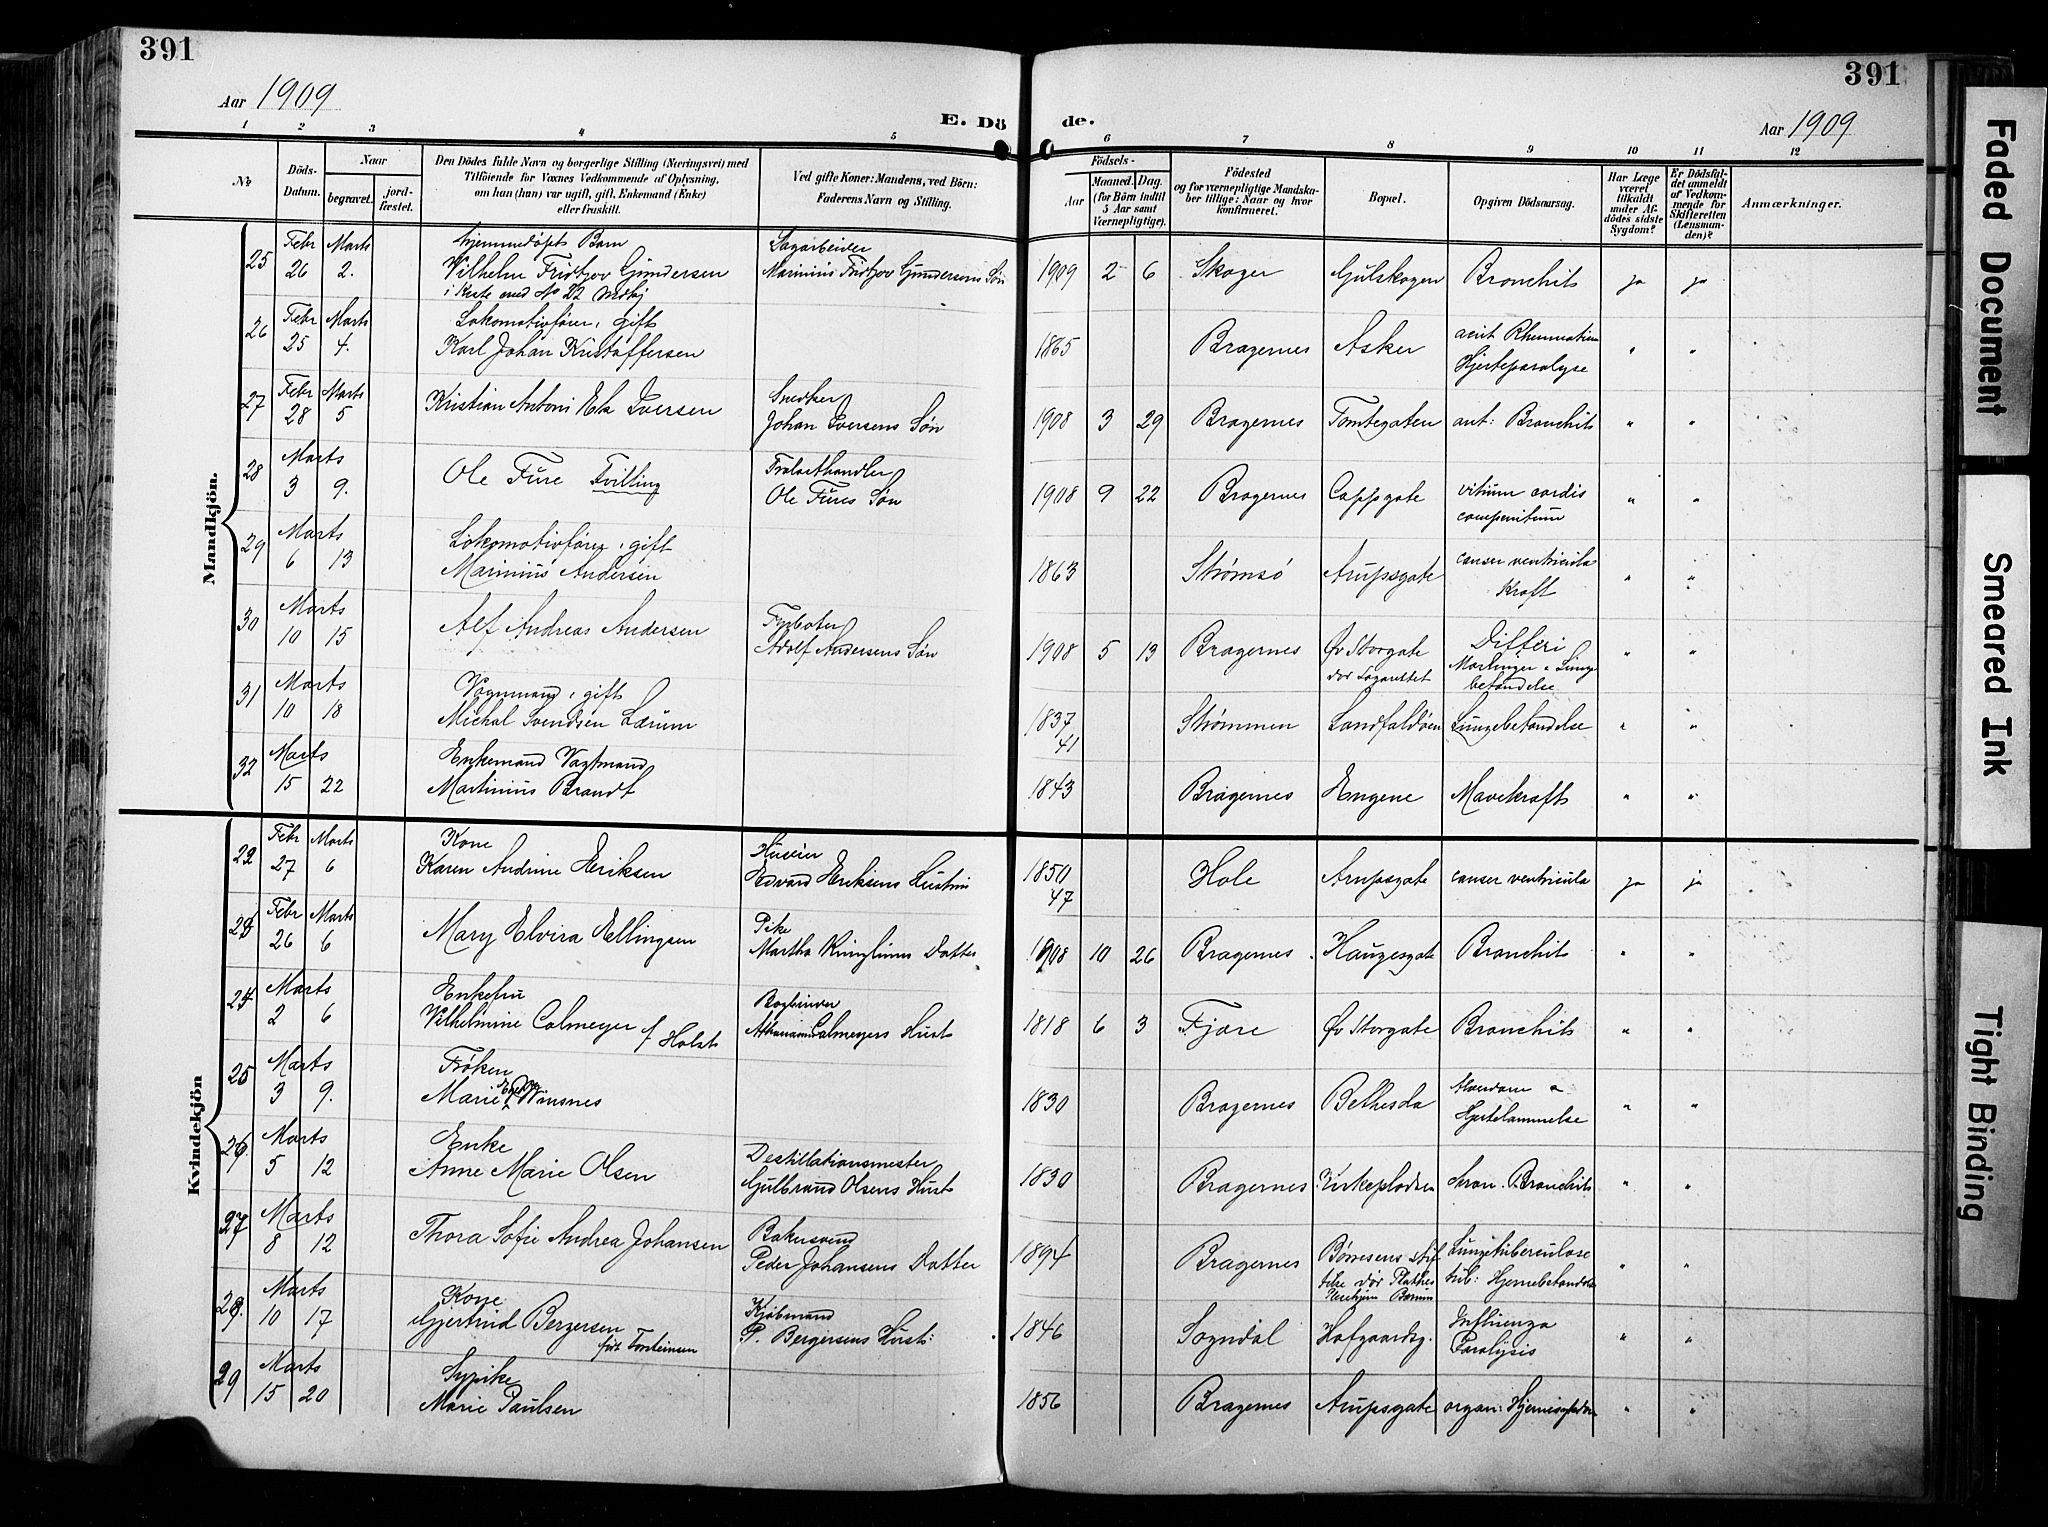 391
391
Aar 1909
E. Dö de.
Aar 1909
1 2 3 4 5 6 7 8 9 10 11 12
No.
Döds-Datum.
Naar
begravet.
jord-fæstet.
Den Dödes fulde Navn og borgerlige Stilling (Næringsvei) med
Tilföiende for Voxnes Vedkommende af Oplysning,
om han (hun) var ugift, gift, Enkemand (Enke)
eller fraskilt.
Ved gifte Koner: Mandens, ved Börn:
Faderens Navn og Stilling.
Födsels-
Aar
Maaned. Dag.
(for Börn indtil
5 Aar samt
Værnepligtige).
Födested
og for værnepligtige Mandska-
ber tillige: Naar og hvor
konfirmeret.
Bopæl.
Opgiven Dödsaarsag.
Har Læge
været
tilkaldt
under Af-
dödes sidste
Sygdom?
Er Dödsfal-
det anmeldt
af Vedkom-
mende for
Skifteretten
(Lensman-
den)?
Anmærkninger.
Mandkjön.
25 Febr 26 Marts 2. Hjemmedøpt Barn
Vilhelm Fridtjov Gundersen
i Kiste med No 22 Mdkj
Sagarbeider
Marinius Fridtjov Gundersens Søn
1909 2 6 Skoger Gulskogen Bronchit ja ja
26 Febr 25 Marts 4. Lokomotivfører, gift
Karl Johan Kristoffersen
1865 Bragernes Asker
Hjerteparalyse " "
27 Febr 28 Marts 5 Kristian Antoni Iversen
Snedker
Johan Iversens Søn
1908 3 29 Bragernes Tomtegaten Bronchit " "
28 Marts 3 9. Ole Fure Tvilling
Ole Fures Søn
1908 9 22 Bragernes Cappsgate vitium cordis
" "
29 Marts 6 13 Lokomotivfører, gift
Marinius Andersen
1863 Strømsø Arupsgate cancer ventricula
Kræft " "
30 Marts 10 15 Alf Andreas Andersen
Fyrbøter
Adolf Andersens Søn
1908 5 13 Bragernes Øv Storgate
Difteri
Lunge
betændelse " "
31 Marts 10 18 Vognmand, gift
Michal Svendsen Lærum
1837
41
Strømmen Landfaldøen Lungebetændelse " "
32 Marts 15 22 Enkemand Vagtmand
Martinius Brandt
1843 Bragernes Engene Mavekræft " "
Kvindekjön
22 Febr 27 Marts 6 Kone
Karen Andrine Eriksen
Huseier
Edvard Eriksens Hustru
1850
47
Hole Arupsgate cancer ventricula ja ja
23 Febr 26 Marts 6 Mary Elvira Ellingsen
Pike
Martha Datter
1908 10 26 Bragernes Haugesgate Bronchit " "
24 Marts 2 6 Enkefru
Vilhelmine Calmeyer f Holst
Bogbinder
Calmeyers Hust
1818 6 3 Fjære Øv Storgate Bronchit " "
25 Marts 3 9. Frøken
Marie Winsnes
1830 Bragernes Bethesda Alderdom o
Hjertelammelse " "
26 Marts 5 12 Enke
Anne Marie Olsen
Destillationsmester
Gulbrand Olsens Hust
1830 Bragernes Kirkepladsen kron. Bronchit " "
27 Marts 8 12 Thora Sofie Andrea Johansen
Bakersvend
Peder Johansens Datter
1894 Bragernes Børresens Stif
telse dør
Lungetuberculose
tub: " "
28. Marts 10 17 Kone
Gjertrud Bergersen
født Torsteinsen
Kjøbmand
P. Bergersens Hust:
1846 Sogndal Hofgaardsg. Influenza
Paralysis " "
29 Marts 15 20 Sypike
Marie Paulsen
1856 Bragernes Arupsgate organ: " "
Faded Document
Smeared Ink
Tight Binding